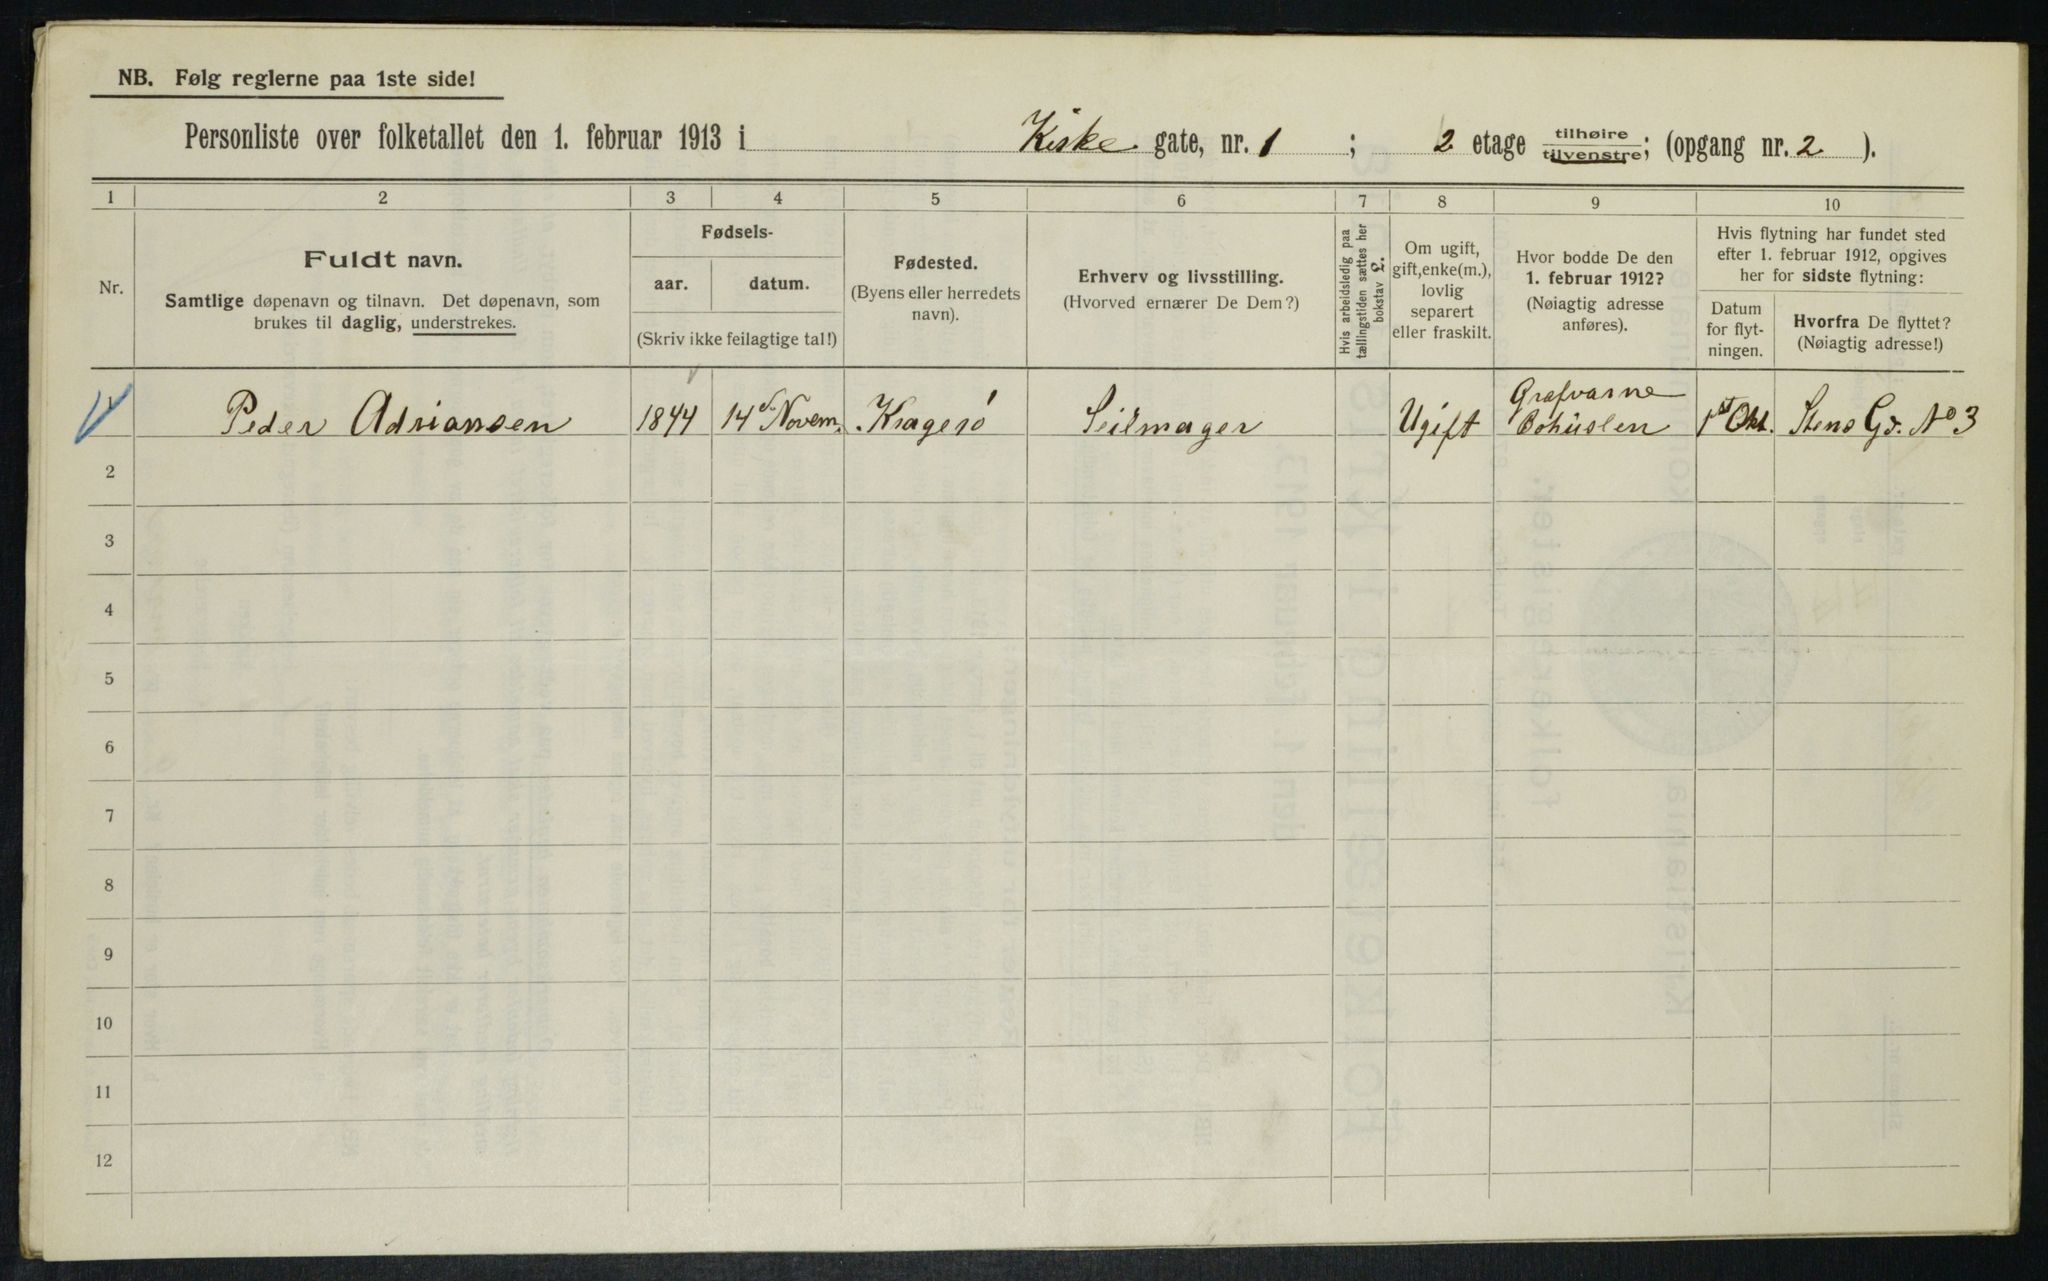 NB. Følg reglerne paa 1ste side!
Personliste over folketallet den 1. februar 1913 i Kiske gate, nr. 1 ; 2 etage tilhøire tilvenstre; (opgang nr. 2 ).
1 2 3 4 5 6 7 8 9 10
Nr.
Fuldt navn.
Samtlige døpenavn og tilnavn. Det døpenavn, som
brukes til daglig, understrekes.
Fødsels-
aar. datum.
(Skriv ikke feilagtige tal!)
Fødested.
(Byens eller herredets
navn).
Erhverv og livsstilling.
(Hvorved ernærer De Dem?)
Hvis arbeidsledig paa
tællingstiden sættes her
bokstav L.
Om ugift,
gift, enke(m.),
lovlig
separert
eller fraskilt.
Hvor bodde De den
1. februar 1912?
(Nøiagtig adresse
anføres).
Hvis flytning har fundet sted
efter 1. februar 1912, opgives
her for sidste flytning:
Datum
for flyt-
ningen.
Hvorfra De flyttet?
(Nøiagtig adresse!)
1 Peder Adriansen 1844 14de Novem. Kragerö Seilmager Ugift Grafvarne Bohüslen 1st Okt. Stens Gd. No 3
2
3
4
5
6
7
8
9
10
11
12